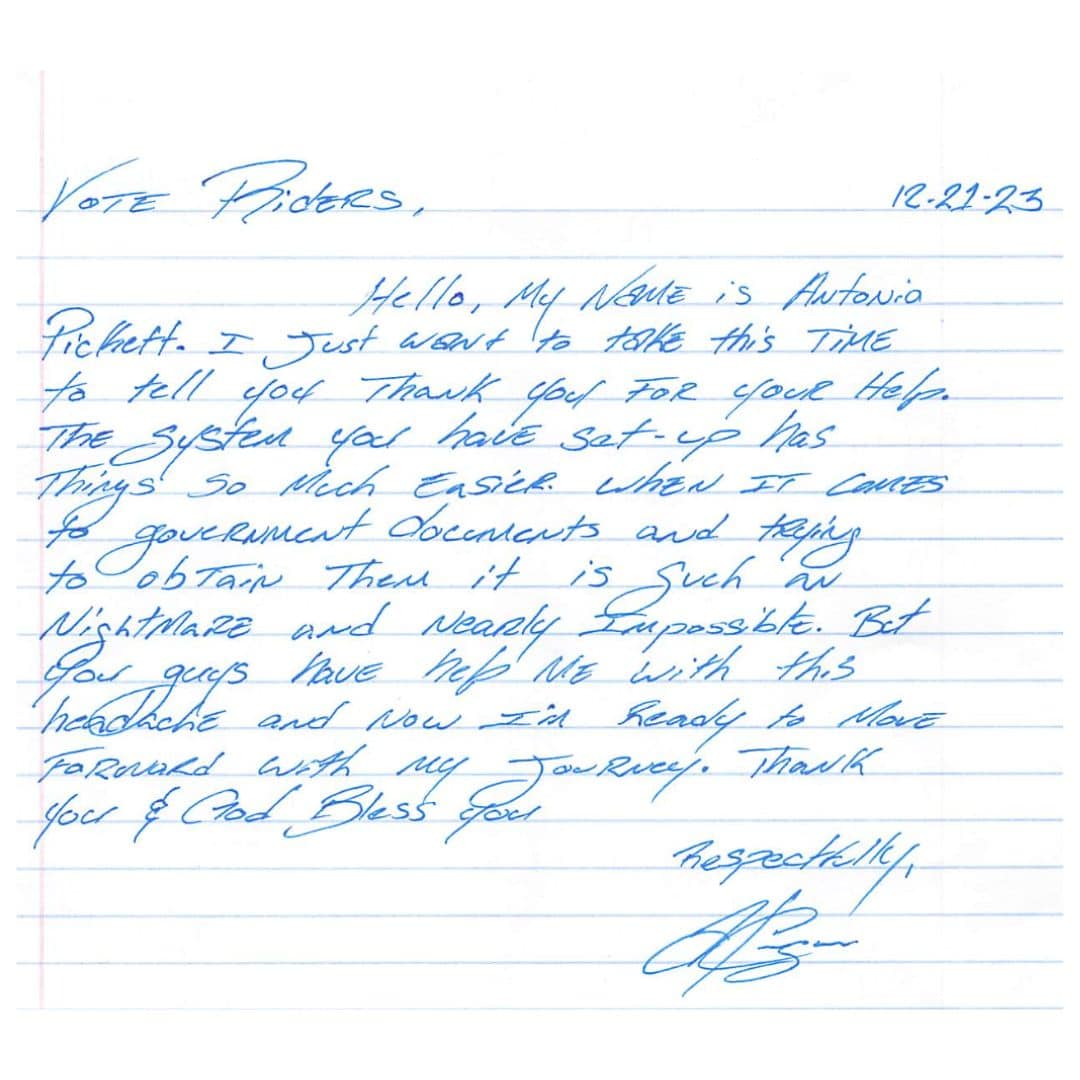 Vote Riders, 12-21-23
Hello, My Name is Antonia
Pickett. I Just want to take this Time
to tell you Thank you For your Help.
The System you have set-up has
Things so Much Easier. When It comes
to government documents and trying
to obtain Them it is such an
Nightmare and Nearly Impossible. But
you guys have help Me with this
headache and Now I'm Ready to Move
Forward with my Journey. Thank
you & God Bless you
Respectfully,